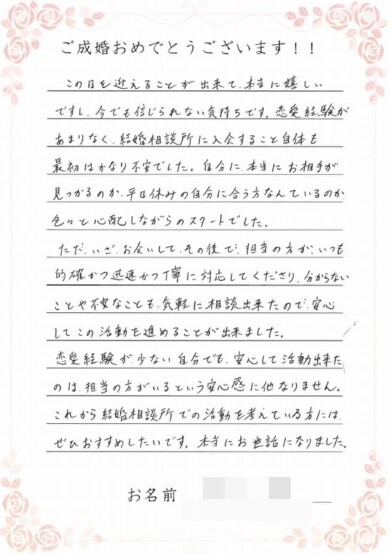 ご成婚おめでとうございます！！
この日を迎えることが出来て、本当に嬉しい
ですし、今でも信じられない気持ちです。恋愛経験が
あまりなく、結婚相談所に入会すること自体も
最初はかなり不安でした。自分に、本当にお相手が
見つかるのか、平日休みの自分に合う方なんているのか
色々と心配しながらのスタートでした。
ただ、いざ、お会いして、その後で、担当の方が、いつも
的確かつ迅速かつ丁寧に対応してくださり、分からない
ことや不安なことも、気軽に相談出来たので、安心
してこの活動を進めることが出来ました。
恋愛経験が少ない自分でも、安心して活動出来た
のは、担当の方がいるという安心感に他なりません。
これから結婚相談所での活動を考えている方には、
ぜひおすすめしたいです。本当にお世話になりました。
お名前